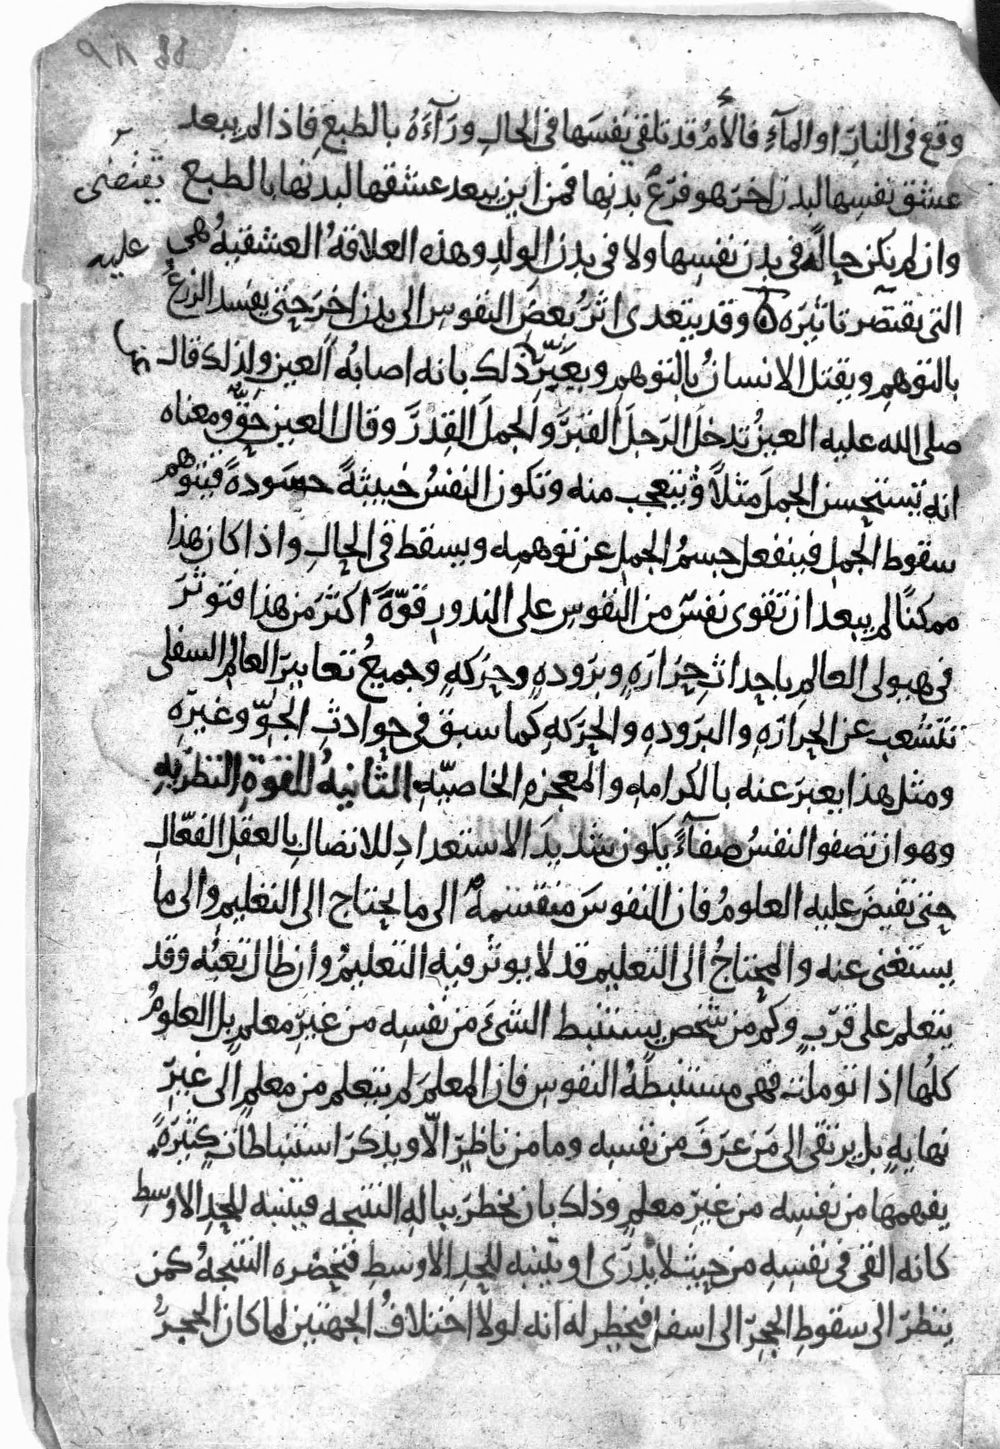 وقع في النار او الماء فالأم قد تلقي نفسها في الحال وراءه بالطبع فاذا لم يبعد
عشق نفسها لبدن اخر هو فرع بدنها فمن اين يبعد عشقها لبدنها بالطبع
تقتضى
وان لم تكن حالة في بدن نفسها ولا في بدن الولد وهذه العلاقة العشقية هي
عليه
التي يقتصر تاثيره وقد يتعدى اثر بعض النفوس الى بدن اخر حتى يفسد الروح
بالتوهم ويقتل الانسان بالتوهم ويعبر ذلك بانه اصابه العين ولذلك قال
صلى الله عليه العين تدخل الرجل القبر والجمل القدر وقال العين حق ومعناه
انه تستحسن الجمل مثلا وتتعجب منه وتكون النفس خبيثة حسودة فيتوهم
سقوط الجمل فينفعل جسم الجمل عن توهمه ويسقط في الحال واذا كان هذا
ممكنا لم يبعد ان تقوى نفس من النفوس على الندور قوة اكثر من هذا فتوثر
في هيولى العالم باحداث حرارة وبرودة وحركة وجميع تغايير العالم السفلى
تتشعب عن الحرارة والبرودة والحركة كما سبق في حوادث الجو وغيره
ومثل هذا يعبر عنه بالكرامه والمعجزه الخاصية الثانية للقوة النظرية
وهو ان تصفو النفس صفاء يكون شديد الاستعداد للاتصال بالعقل الفعال
حتى تفيض عليه العلوم فان النفوس منقسمة الى ما يحتاج الى التعليم والى ما
يستغنى عنه والمحتاج الى التعليم قد لا يوثر فيه التعليم وان طال تعبه وقد
يتعلم على قرب وكم من شخص يستنبط الشئ من نفسه من غير معلم بل العلوم
كلها اذا توملت فهي مستنبطة النفوس فان المعلم لم يتعلم من معلم الى غير
نهاية بل يرتقى الى من عرف من نفسه وما من ناظر الا ويذكر استنباطات كثيرة
يفهمها من نفسه من غير معلم وذلك بان يخطر بباله النتيجه فيتنبه للحد الاوسط
كانه القي في نفسه من حيث لا يدرى او يتنبه للحد الاوسط فتحضره النتيجة كمن
ينظر الى سقوط الحجر الى اسفل فيخطر له انه لولا اختلاف الجهتين لما كان الحجر